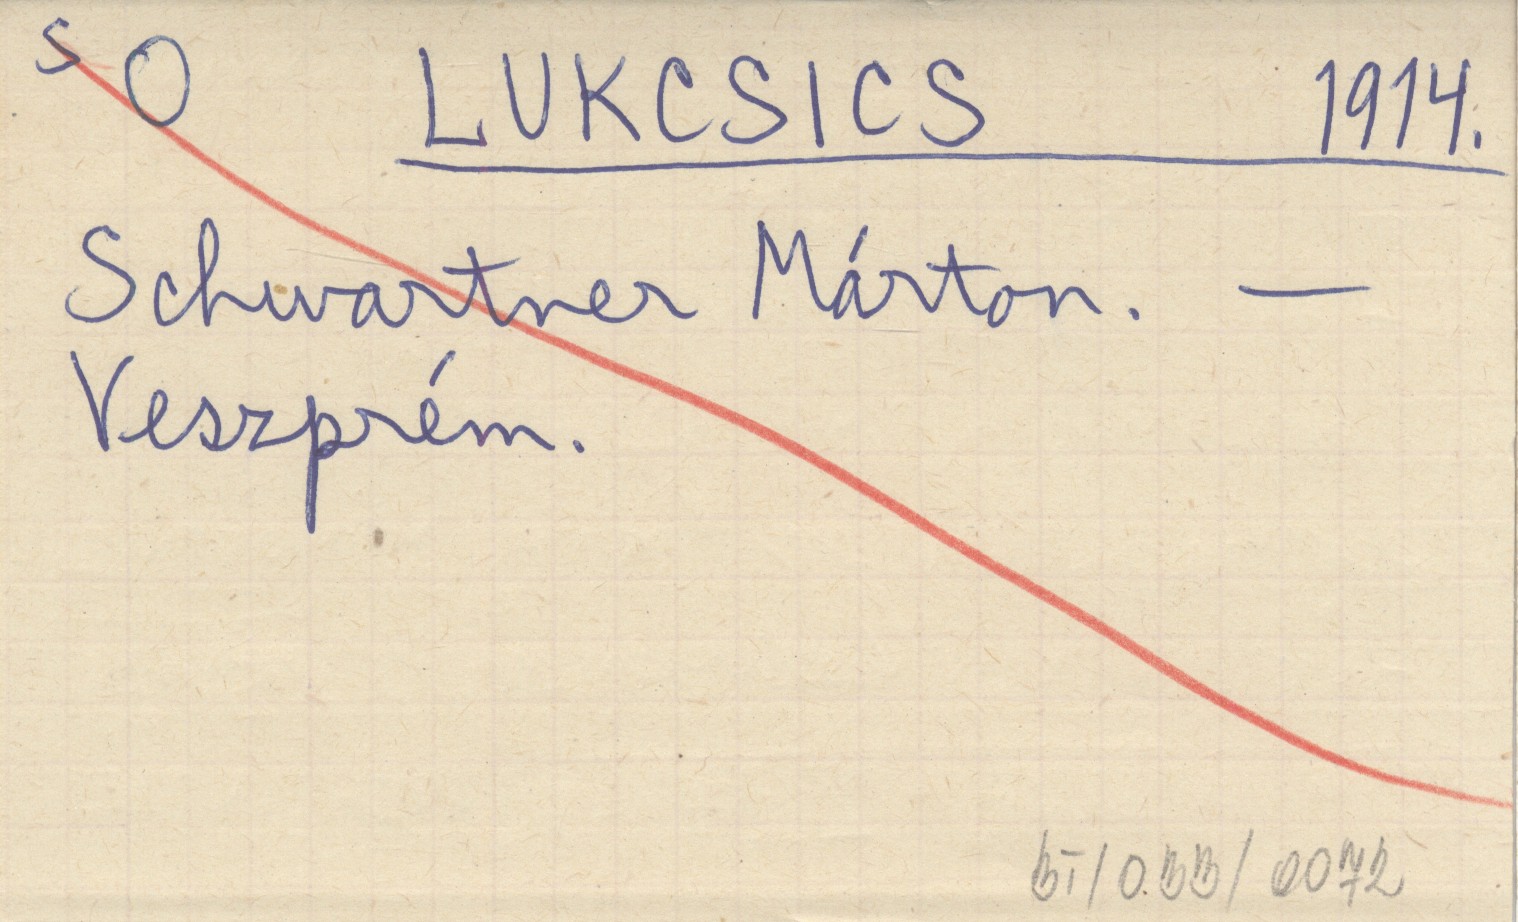 S O LUKCSICS 1914.
Schwartner Márton. —
Veszprém.